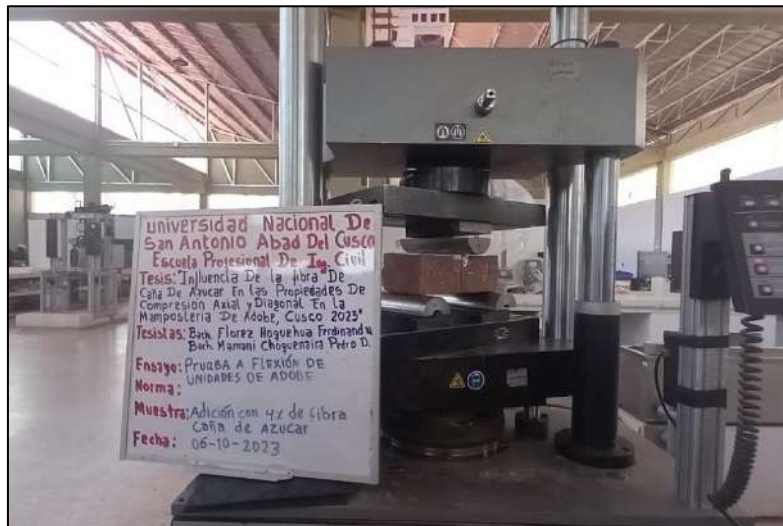 universidad Nacional De
San Antonio Abad Del Cusco
Escuela Profesional De Ing. Civil
Tesis: "Influencia De la fibra De
Caña De Azucar En las Propiedades De
Compresión Axial y Diagonal En la
Mamposteria De Adobe, Cusco 2023"
Tesistas: Bach. Florez Hoguehua Ferdinand
Bach. Mamani Choguenaira Pedro D.
Ensayo: PRUABA A FLEXIÓN DE
UNIDADES DE ADOBE
Norma:
Muestra: Adición con 4% de fibra
Caña de AZUCAR
Fecha: 06-10-2023